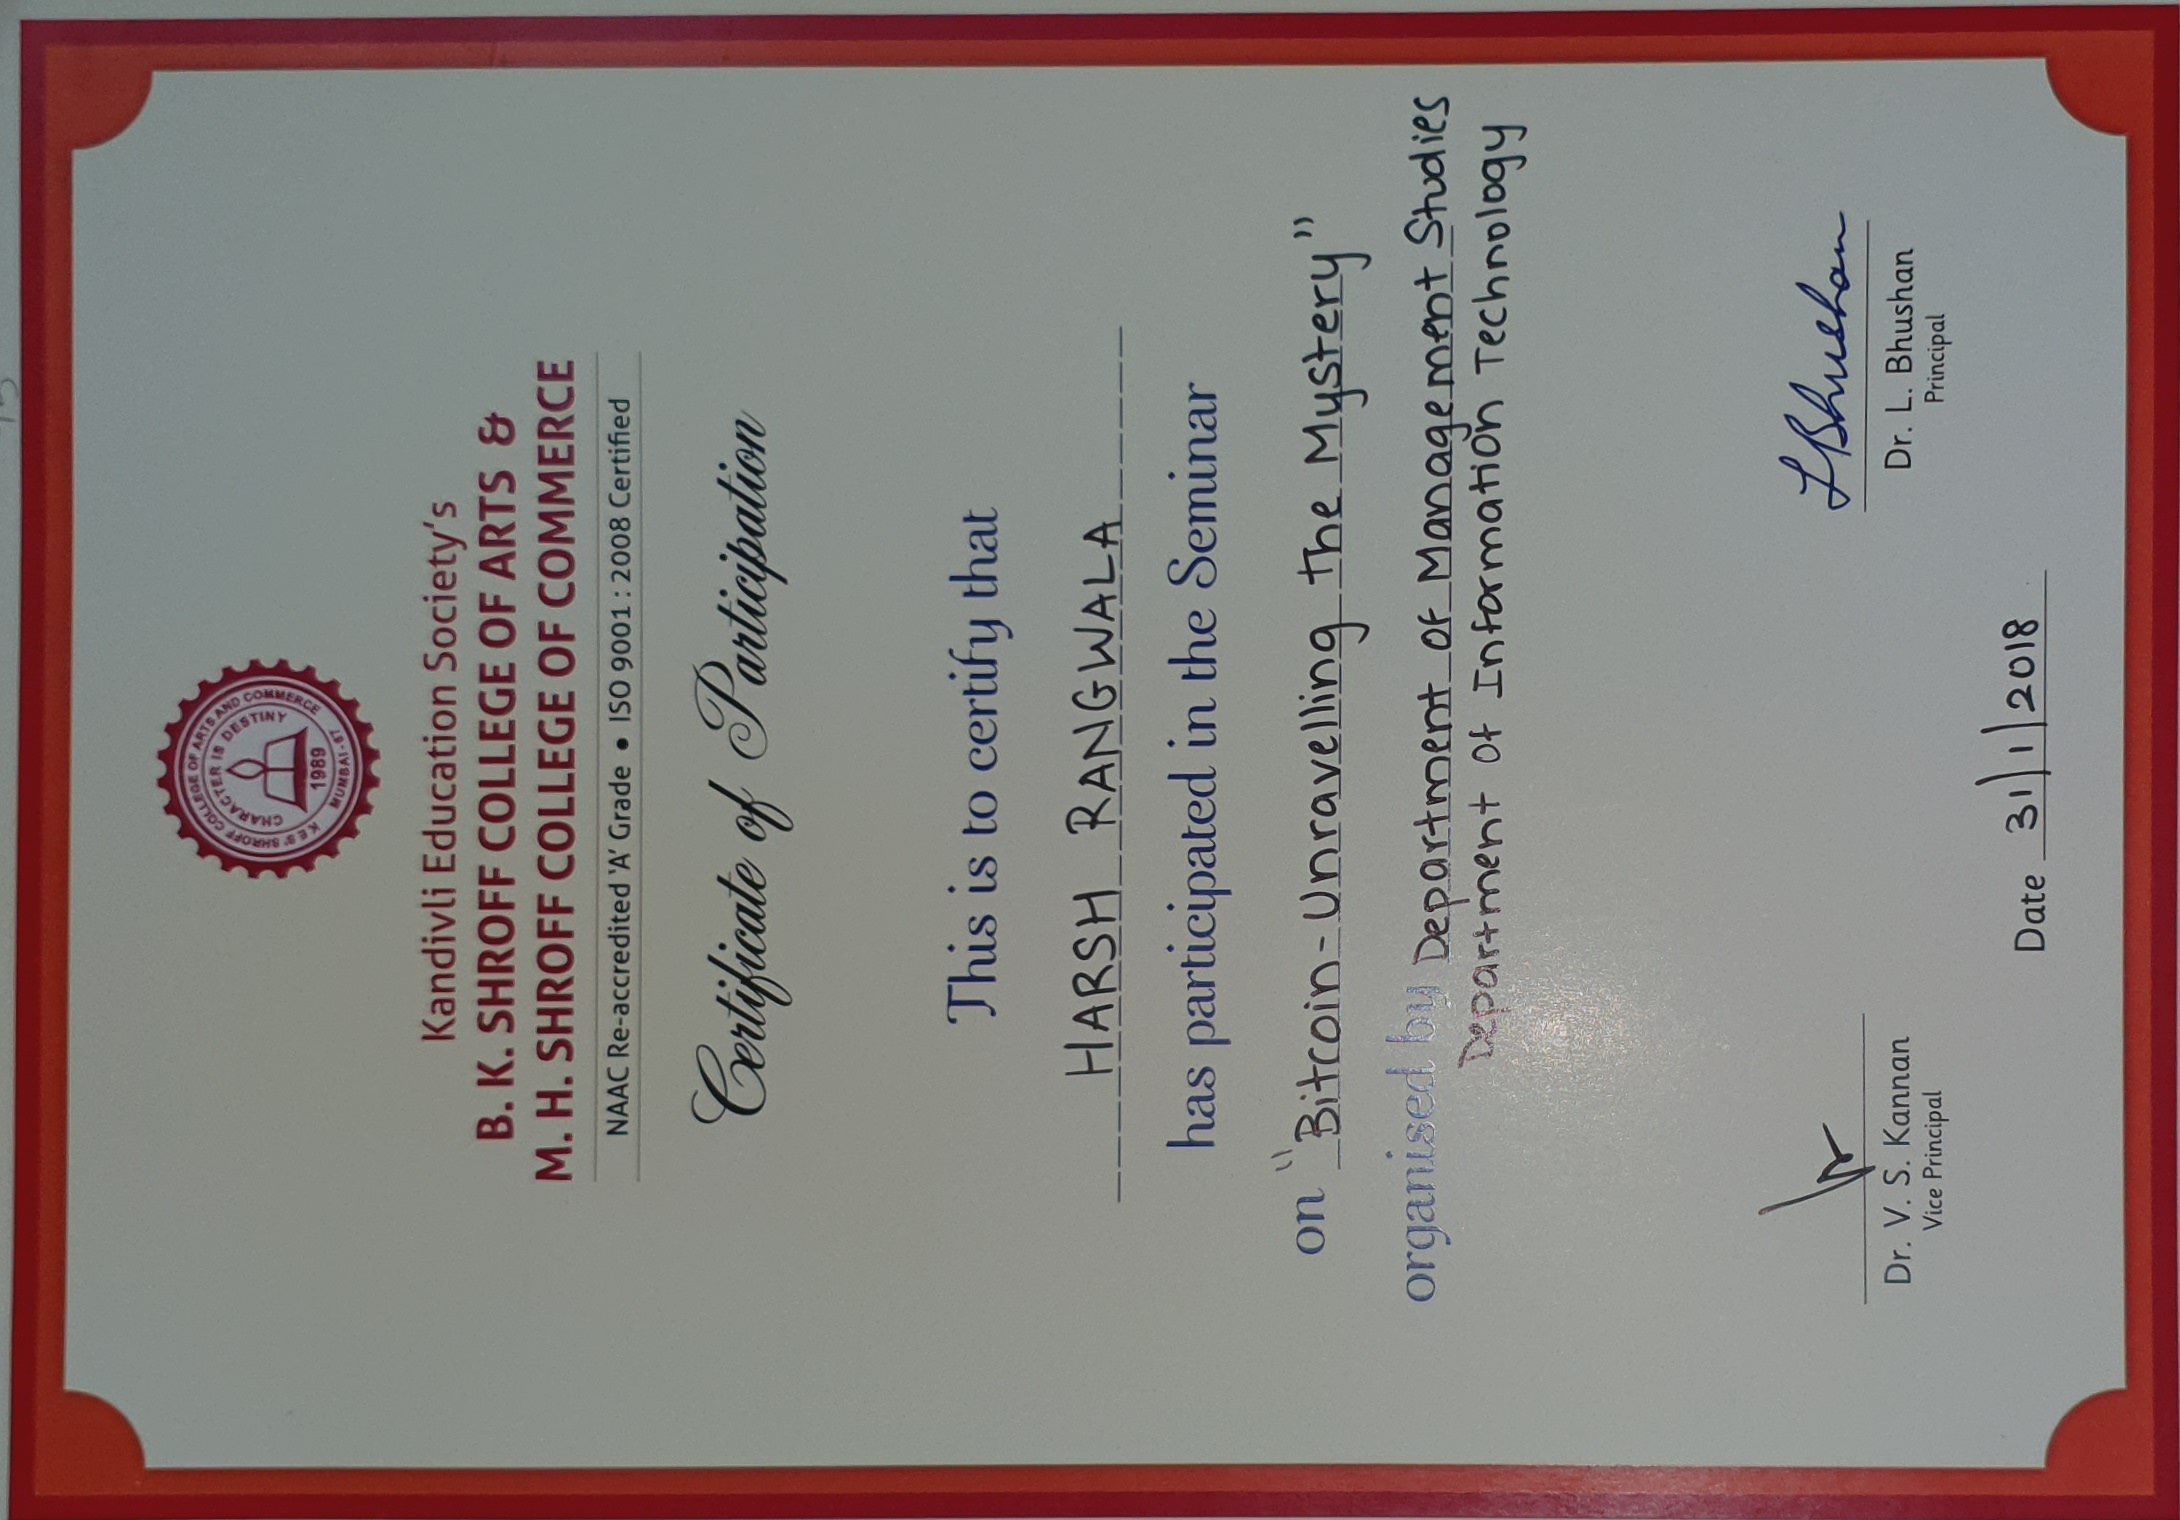 K E S' SHROFF COLLEGE OF ARTS AND COMMERCE
CHARACTER IS DESTINY
1989
MUMBAI-67
Kandivli Education Society's
B. K. SHROFF COLLEGE OF ARTS &
M. H. SHROFF COLLEGE OF COMMERCE
NAAC Re-accredited 'A' Grade • ISO 9001 : 2008 Certified
Certificate of Participation
This is to certify that
HARSH RANGWALA
has participated in the Seminar
on "Bitcoin-Unravelling the Mystery"
organised by Department of Management Studies
Department of Information Technology
LBhushan
Dr. V. S. Kannan Dr. L. Bhushan
Vice Principal Principal
Date 31/1/2018